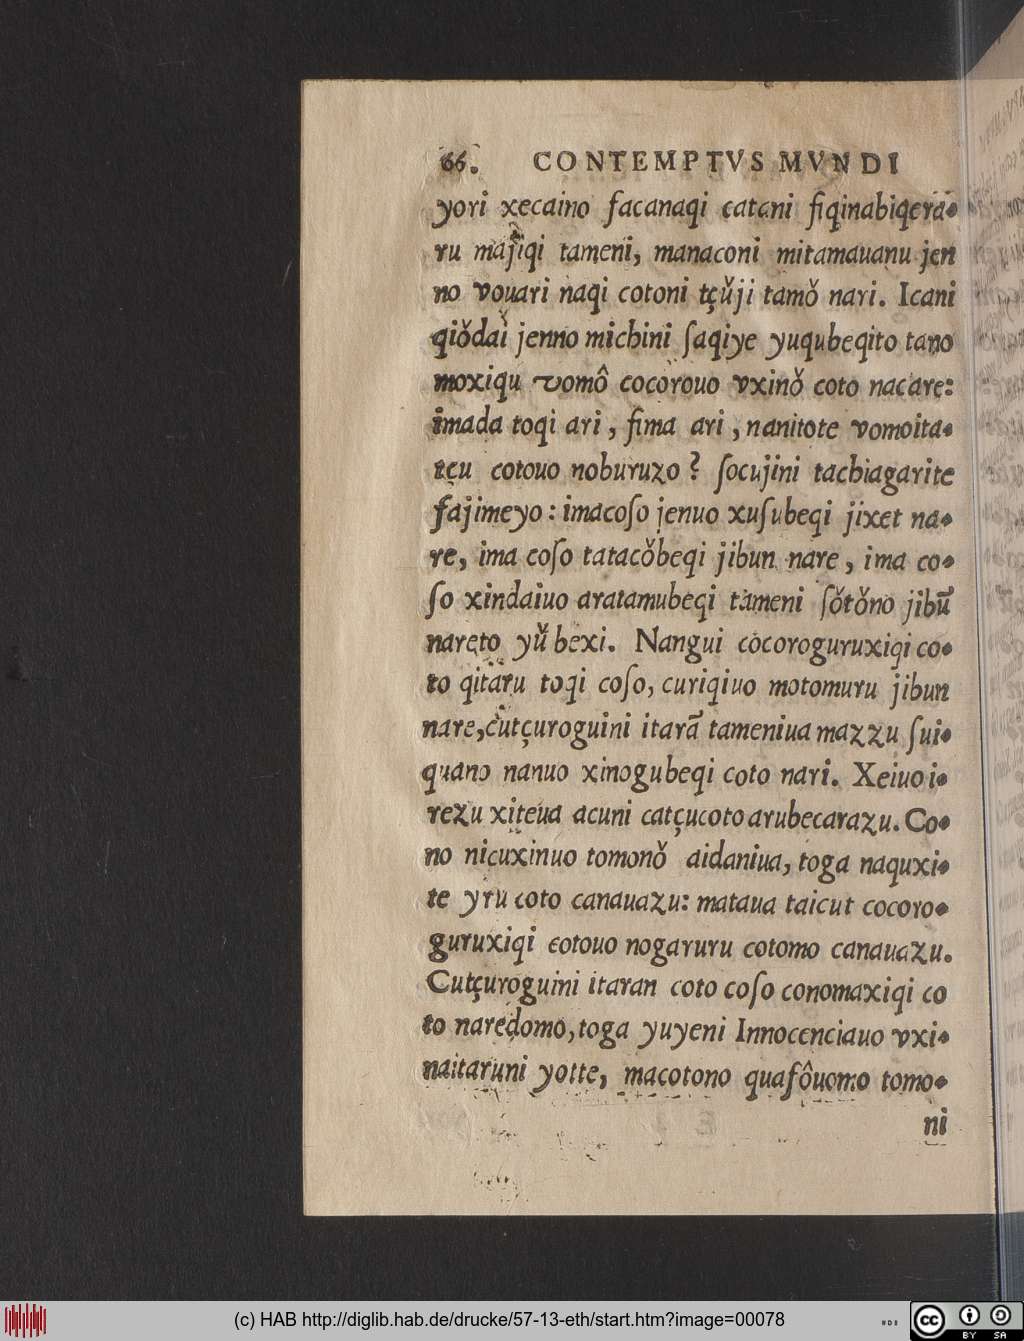 66. CONTEMPTVS MVNDI
yori xecaino facanaqi catani fiqinabiqera-
ru majiqi tameni, manaconi mitamauanu jen
no vouari naqi cotoni tçǔji tamǒ nari. Icani
qiǒdai jenno michini ſaqiye yuqubeqito tano
moxiqu vomô cocorouo vxinǒ coto nacare:
imada toqi ari, fima ari, nanitote vomoita-
tçu cotouo noburuzo? ſocujini tachiagarite
fajimeyo: imacoſo jenuo xuſubeqi jixet na-
re, ima coſo tatacǒbeqi jibun nare, ima co-
ſo xindaiuo aratamubeqi tameni ſǒtǒno jibũ
nareto yǔbexi. Nangui cocoroguruxiqi co-
to qitaru toqi coſo, curiqiuo motomuru jibun
nare, cutçuroguini itarã tameniua mazzu ſui-
quano nanuo xinogubeqi coto nari. Xeiuo i-
rezu xiteua acuni catçucoto arubecarazu. Co-
no nicuxinuo tomonǒ aidaniua, toga naquxi-
te yru coto canauazu: mataua taicut cocoro-
guruxiqi cotouo nogaruru cotomo canauazu.
Cutçuroguini itaran coto coſo conomaxiqi co
to naredomo, toga yuyeni Innocenciauo vxi-
naitaruni yotte, macotono quafôuomo tomo-
ni
(c) HAB http://diglib.hab.de/drucke/57-13-eth/start.htm?image=00078
cc BY SA